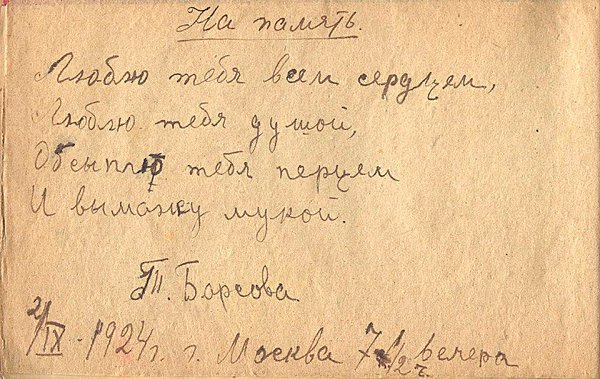 На память.
Люблю тебя всем сердцем,
Люблю тебя душой,
Обсыплю тебя перцем
И вымажу мукой.
Т. Борсова
2/IX - 1924 г. г. Москва 7 1/2 ч. вечера